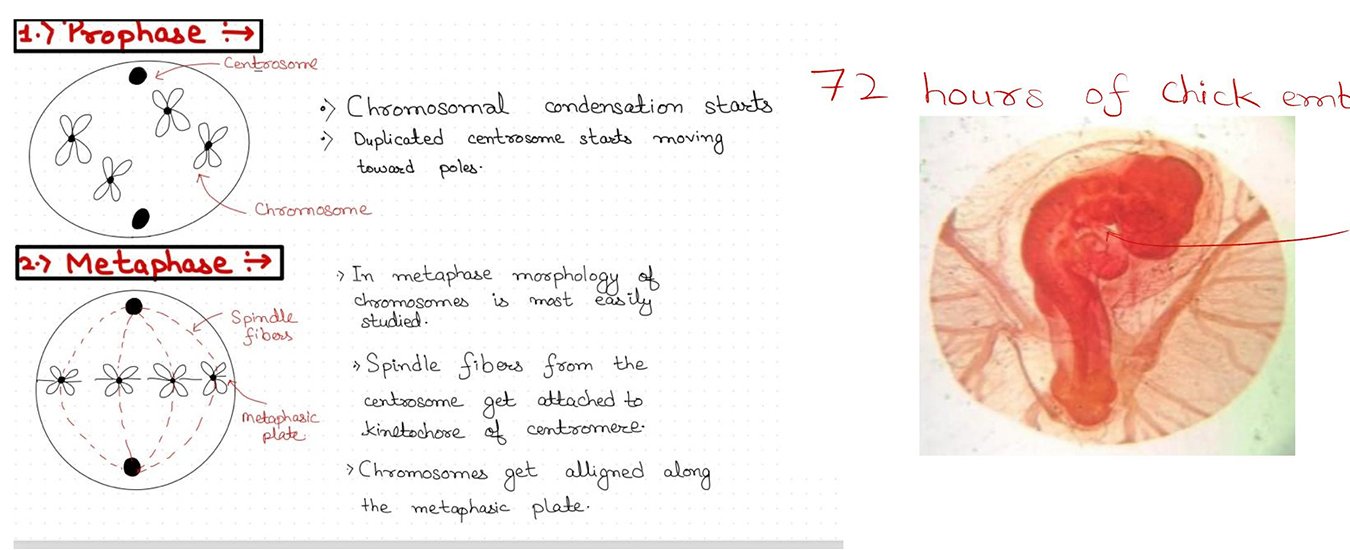 1.> Prophase :→
Centrosome
Chromosome
•> Chromosomal condensation starts
•> Duplicated centrosome starts moving
toward poles.
2.> Metaphase :→
Spindle
fibers
metaphasic
plate
> In metaphase morphology of
chromosomes is most easily
studied.
» Spindle fibers from the
centrosome get attached to
kinetochore of centromere.
> Chromosomes get alligned along
the metaphasic plate.
72 hours of chick